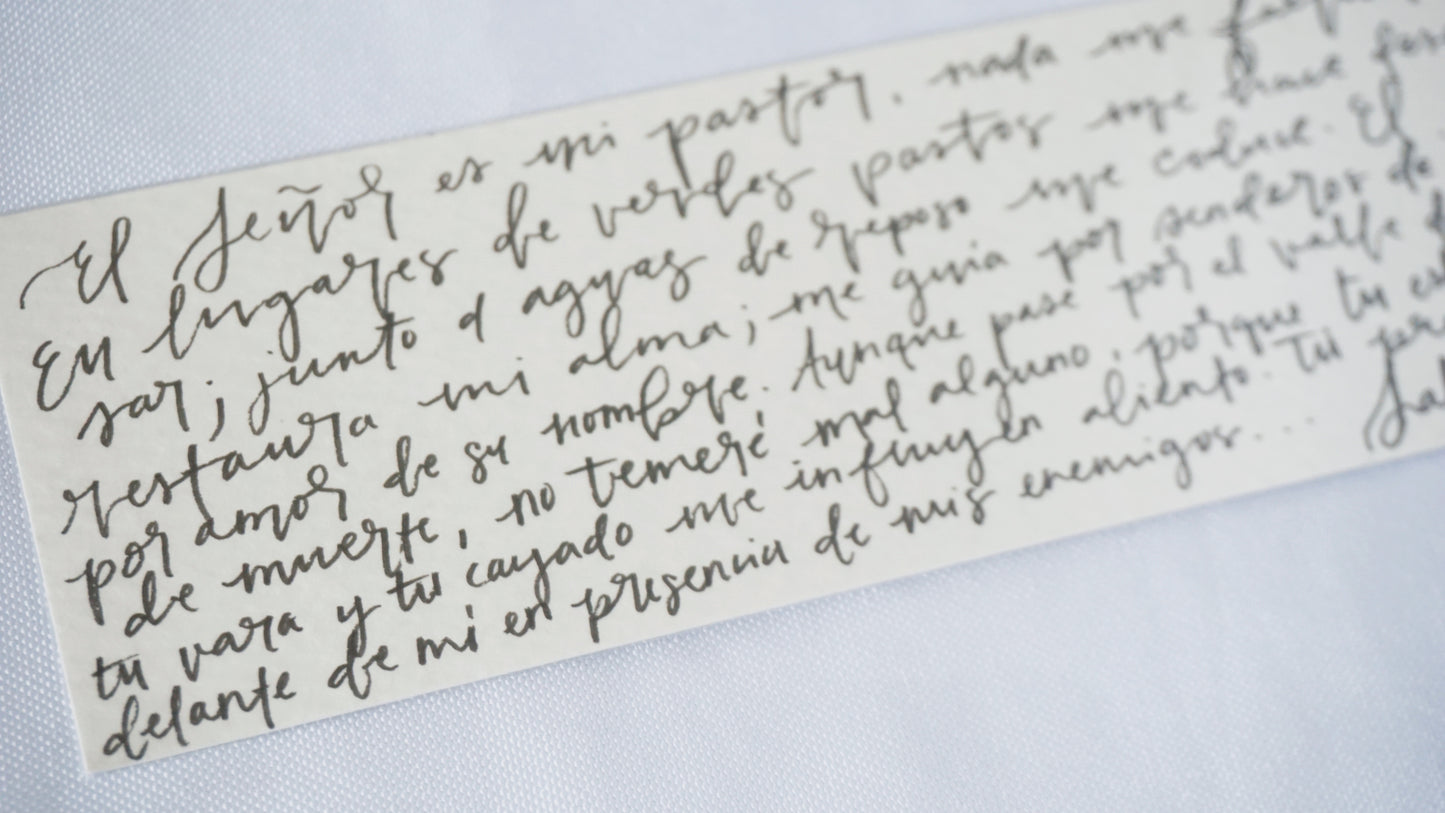 El Señor es mi pastor, nada me
En lugares de verdes pastos me hace
sar; junto a aguas de reposo me coduce. El
restaura mi alma; me guia por senderos de
por amor de su nombre. Aunque pase por el valle
de muerte, no temeré mal alguno, porque tu
tu vara y tu cayado me infunyen aliento. Tu
delante de mi en presencia de mis enemigos...